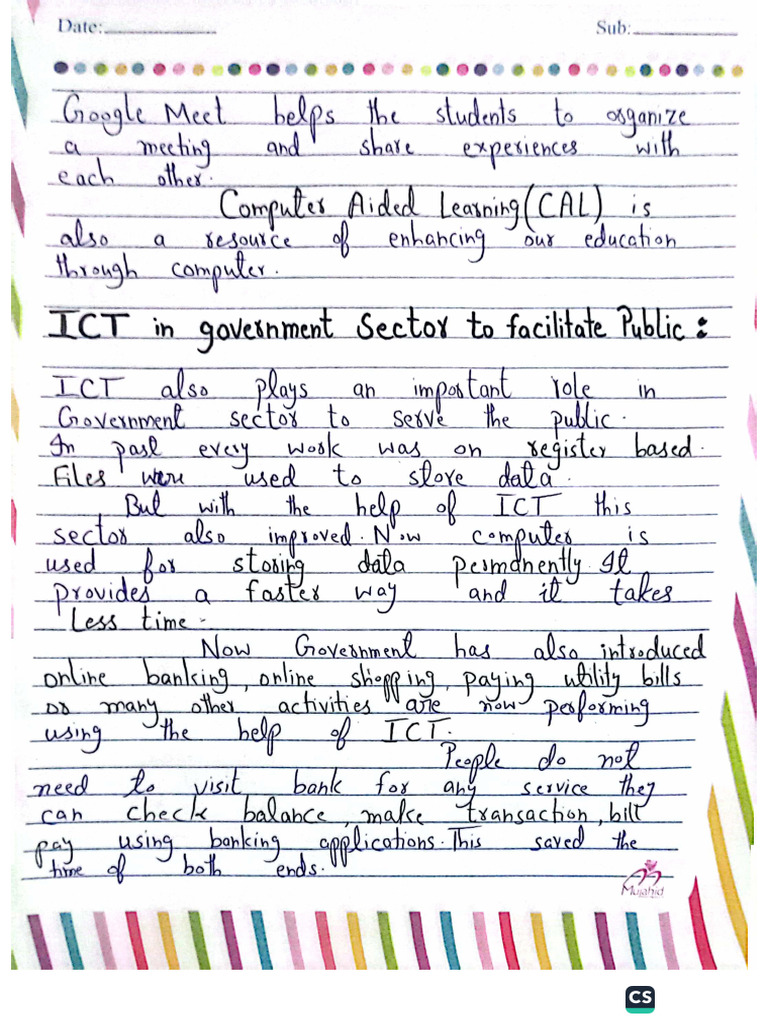 Date: Sub:
Google Meet helps the students to organize
a meeting and share experiences with
each other.
Computer Aided Learning (CAL) is
also a resource of enhancing our education
through computer.
ICT in government Sector to facilitate Public:
ICT also plays an important role in
Government sector to serve the public.
In past every work was on register based.
Files were used to store data.
But with the help of ICT this
sector also improved. Now computer is
used for storing data permanently. It
provides a faster way and it takes
Less time.
Now Government has also introduced
online banking, online shopping, paying utility bills
or many other activities are now performing
using the help of ICT.
People do not
need to visit bank for any service they
can check balance, make transaction, bill
pay using banking applications. This saved the
time of both ends.
Mujahid
CS